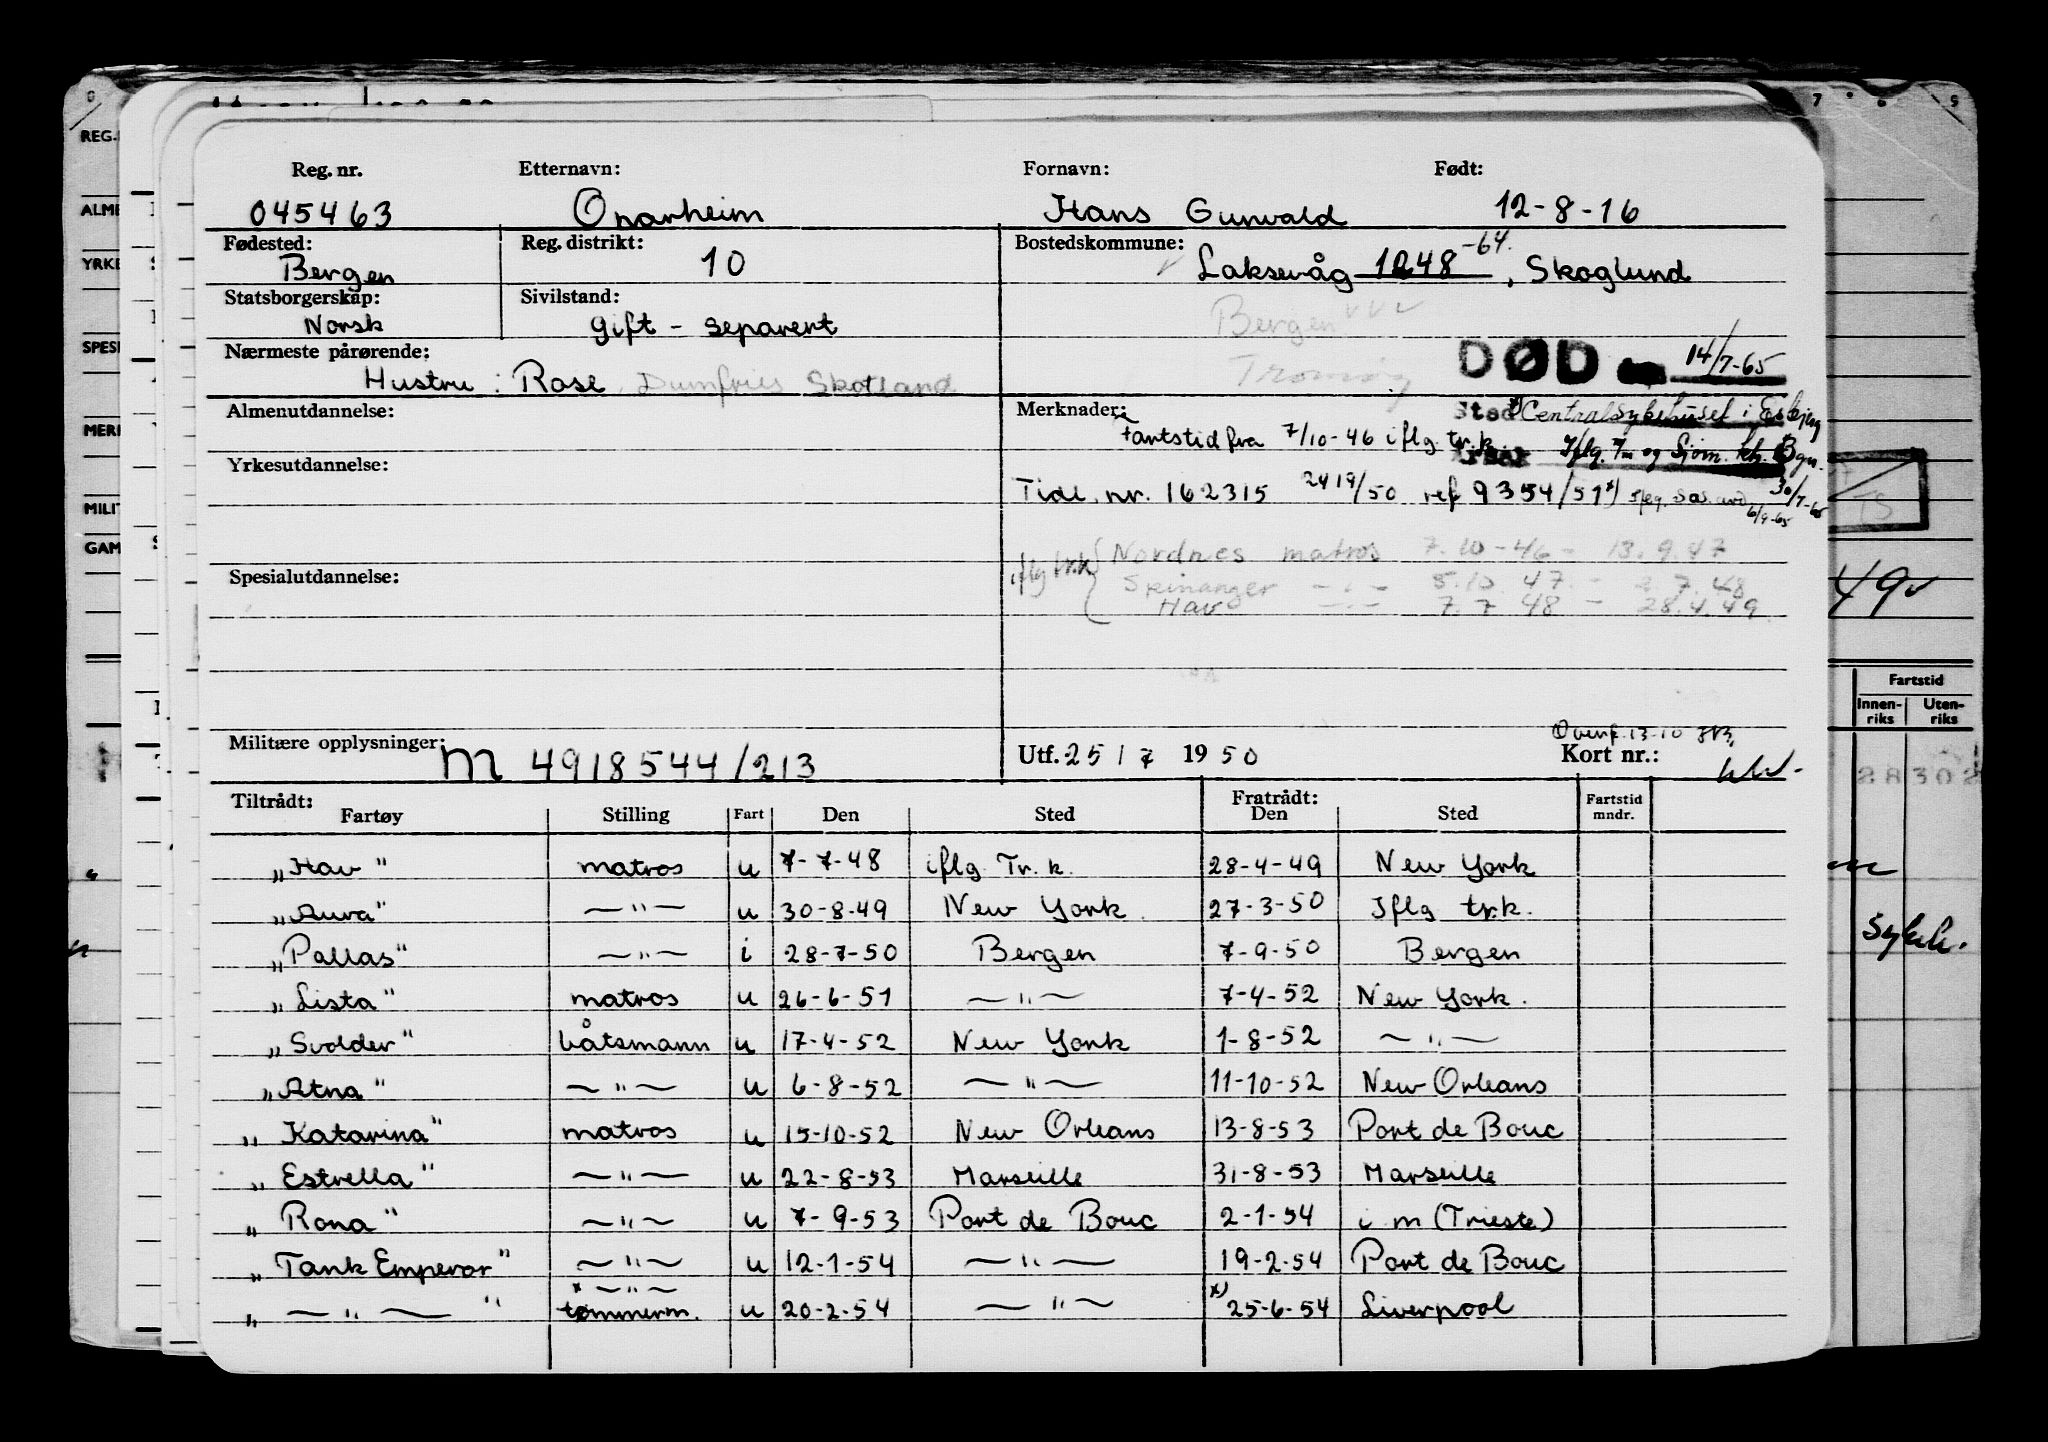 Reg. nr. Etternavn: Fornavn: Født:
045463 Onarheim Hans Gunvald 12-8-16
Fødested: Reg. distrikt: Bostedskommune:
Bergen 10 Laksevåg 1248 -64. , Skoglund
Statsborgerskap: Sivilstand:
Norsk gift - separert Bergen
Nærmeste pårørende: DØD 14/7-65
Hustru: Rose, Dumfries Skotland Tromøy
Almenutdannelse: Merknader: Sted Centralsykehuset i Esbjerg
Fartstid fra 7/10-46 iflg. tr.k. Iflg. 7m og Sjøm. ktr. Bgn.
Yrkesutdannelse: 30/7-65
Tidl. nr. 162315 2419/50 ref 9354/51 x) 6/9-65
Nordnes matros 7.10-46 - 13.9.47
Spesialutdannelse: iflg tr.k. Skinanger -"- 5.10 47. - 2.7.48
Hav -"- 7.7 48 - 28.4.49
Militære opplysninger: M 4918544/213 Utf. 25/7 1950 Overf. 13-10 Kort nr.:
Tiltrådt: Fratrådt:
Fartøy Stilling Fart Den Sted Den Sted Fartstid mndr.
„Hav" matros u 7-7-48 iflg. Tr. k. 28-4-49 New York
„Aura" -"- u 30-8-49 New York. 27-3-50 Iflg tr.k.
„Pallas" -"- i 28-7-50 Bergen 7-9-50 Bergen
„Lista" matros u 26-6-51 -"- 7-4-52 New York.
„Svolder" båtsmann u 17-4-52 New York 1-8-52 -"-
„Atna" -"- u 6-8-52 -"- 11-10-52 New Orleans
„Katarina" matros u 15-10-52 New Orleans 13-8-53 Port de Bouc
„Estrella" -"- u 22-8-53 Marseille 31-8-53 Marseille
„Rona" -"- u 7-9-53 Port de Bouc 2-1-54 i m (Trieste)
„Tank Emperor" -"- u 12-1-54 -"- 19-2-54 Port de Bouc
x -"-
„ -"- " tømmerm. u 20-2-54 -"- x) 25-6-54 Liverpool
REG.
ALME
YRKE
SPESI
MERI
MILIT
GAM
7 6 5
TS
49
Fartstid
Innen-riks Uten-riks
28302
Sykeh.